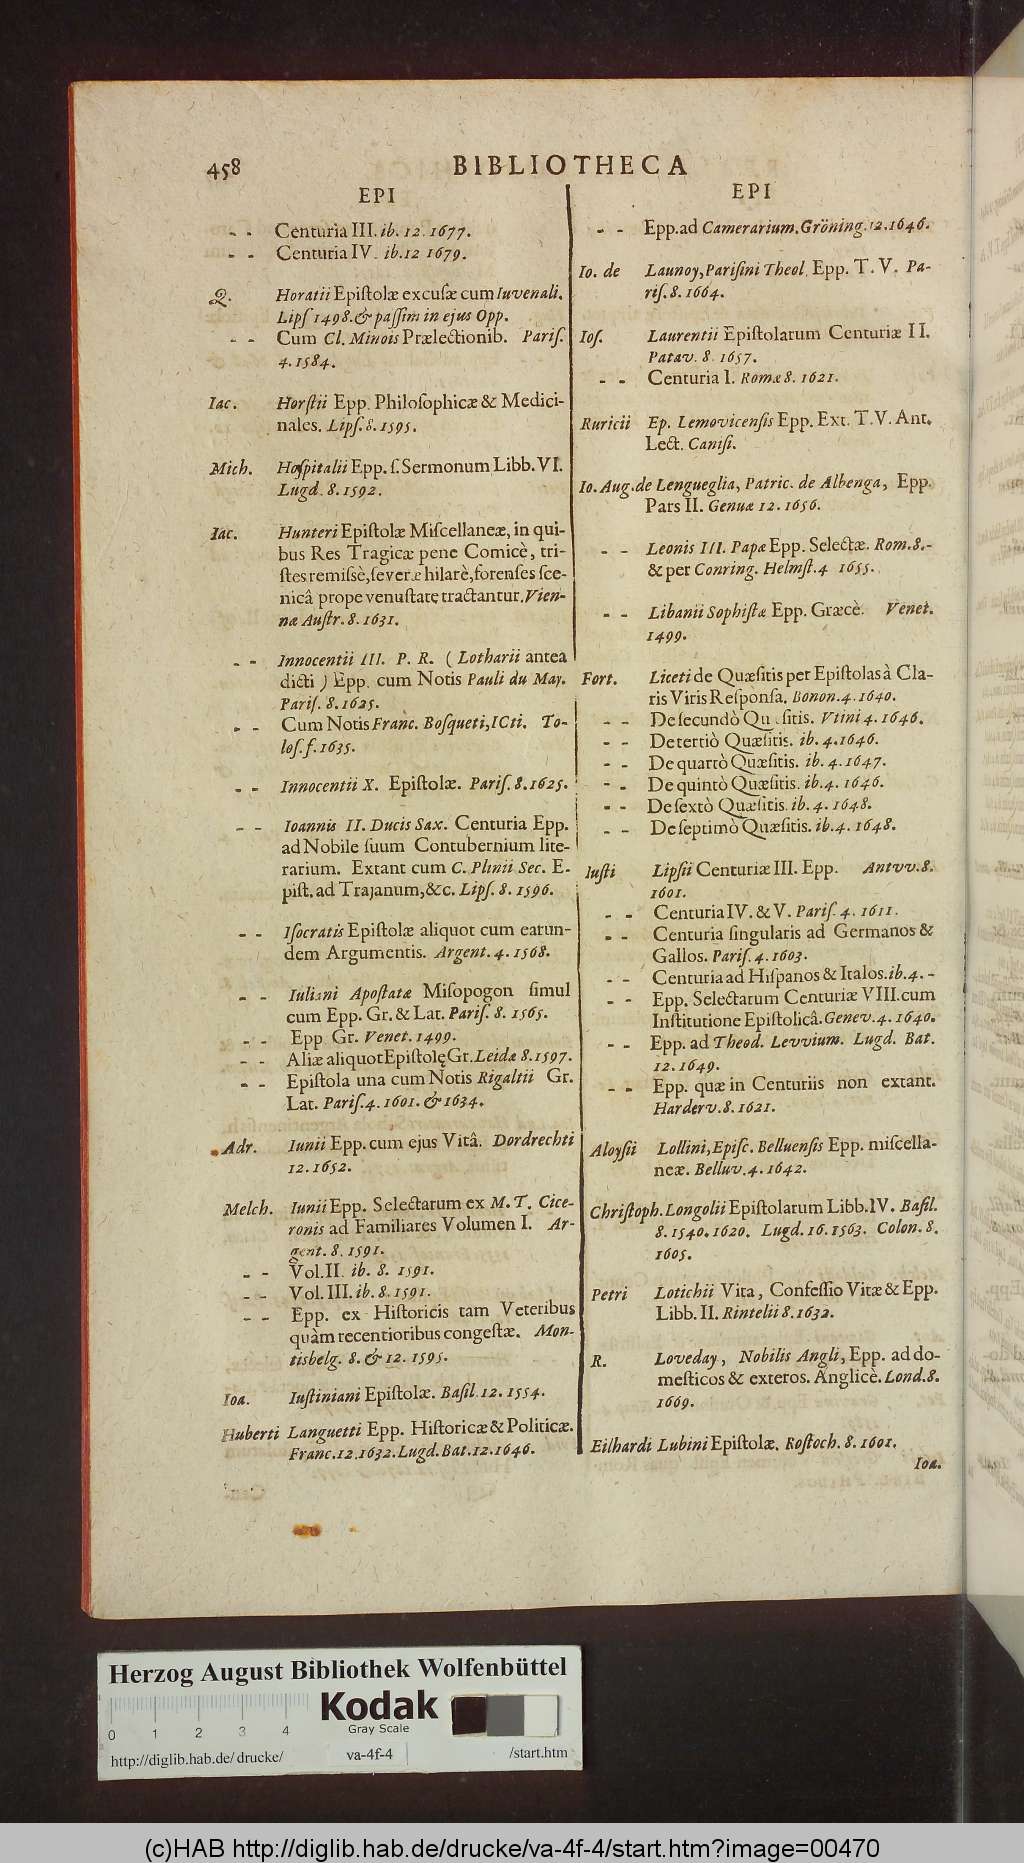 458
BIBLIOTHECA
EPI
- - Centuria III. ib. 12. 1677.
- - Centuria IV. ib. 12 1679.
Q. Horatii Epiſtolæ excuſæ cum Iuvenali.
Lipſ 1498. & paſſim in ejus Opp.
- - Cum Cl. Minois Prælectionib. Pariſ.
4. 1584.
Iac. Horſtii Epp. Philoſophicæ & Medici-
nales. Lipſ. 8. 1595.
Mich. Hoſpitalii Epp. ſ. Sermonum Libb. VI.
Lugd. 8. 1592.
Iac. Hunteri Epiſtolæ Miſcellaneæ, in qui-
bus Res Tragicæ pene Comicè, tri-
ſtes remiſsè, ſeveræ hilarè, forenſes ſce-
nicâ prope venuſtatę tractantur. Vien-
næ Auſtr. 8. 1631.
- - Innocentii III. P. R. ( Lotharii antea
dicti ) Epp. cum Notis Pauli du May.
Pariſ. 8. 1625.
- - Cum Notis Franc. Boſqueti, ICti. To-
loſ. f. 1635.
- - Innocentii X. Epiſtolæ. Pariſ. 8. 1625.
- - Ioannis II. Ducis Sax. Centuria Epp.
ad Nobile ſuum Contubernium lite-
rarium. Extant cum C. Plinii Sec. E-
piſt. ad Trajanum, &c. Lipſ. 8. 1596.
- - Iſocratis Epiſtolæ aliquot cum earun-
dem Argumentis. Argent. 4. 1568.
- - Iuliani Apoſtatæ Miſopogon ſimul
cum Epp. Gr. & Lat. Pariſ. 8. 1565.
- - Epp Gr. Venet. 1499.
- - Aliæ aliquot Epiſtolę Gr. Leidæ 8. 1597.
- - Epiſtola una cum Notis Rigaltii Gr.
Lat. Pariſ. 4. 1601. & 1634.
Adr. Iunii Epp. cum ejus Vitâ. Dordrechti
12. 1652.
Melch. Iunii Epp. Selectarum ex M. T. Cice-
ronis ad Familiares Volumen I. Ar-
gent. 8. 1591.
- - Vol. II. ib. 8. 1591.
- - Vol. III. ib. 8. 1591.
- - Epp. ex Hiſtoricis tam Veteribus
quàm recentioribus congeſtæ. Mon-
tisbelg. 8. & 12. 1595.
Ioa. Iuſtiniani Epiſtolæ. Baſil. 12. 1554.
Huberti Languetti Epp. Hiſtoricæ & Politicæ.
Franc. 12. 1632. Lugd. Bat. 12. 1646.
EPI
- - Epp. ad Camerarium. Gröning. 12. 1646.
Io. de Launoy, Pariſini Theol. Epp. T. V. Pa-
riſ. 8. 1664.
Ioſ. Laurentii Epiſtolarum Centuriæ II.
Patav. 8. 1657.
- - Centuria I. Romæ 8. 1621.
Ruricii Ep. Lemovicenſis Epp. Ext. T. V. Ant.
Lect. Caniſi.
Io. Aug. de Lengueglia, Patric. de Albenga, Epp.
Pars II. Genuæ 12. 1656.
- - Leonis III. Papæ Epp. Selectæ. Rom. 8. -
& per Conring. Helmſt. 4 1655.
- - Libanii Sophiſtæ Epp. Græcè. Venet.
1499.
Fort. Liceti de Quæſitis per Epiſtolas à Cla-
ris Viris Reſponſa. Bonon. 4. 1640.
- - De ſecundò Quæſitis. Vtini 4. 1646.
- - De tertiò Quæſitis. ib. 4. 1646.
- - De quartò Quæſitis. ib. 4. 1647.
- - De quintò Quæſitis. ib. 4. 1646.
- - De ſextò Quæſitis. ib. 4. 1648.
- - De ſeptimò Quæſitis. ib. 4. 1648.
Iuſti Lipſii Centuriæ III. Epp. Antvv. 8.
1601.
- - Centuria IV. & V. Pariſ. 4. 1611.
- - Centuria ſingularis ad Germanos &
Gallos. Pariſ. 4. 1603.
- - Centuria ad Hiſpanos & Italos. ib. 4. -
- - Epp. Selectarum Centuriæ VIII. cum
Inſtitutione Epiſtolicâ. Genev. 4. 1640.
- - Epp. ad Theod. Levvium. Lugd. Bat.
12. 1649.
- - Epp. quæ in Centuriis non extant.
Harderv. 8. 1621.
Aloyſii Lollini, Epiſc. Belluenſis Epp. miſcella-
neæ. Belluv. 4. 1642.
Chriſtoph. Longolii Epiſtolarum Libb. IV. Baſil.
8. 1540. 1620. Lugd. 16. 1563. Colon. 8.
1605.
Petri Lotichii Vita, Confeſſio Vitæ & Epp.
Libb. II. Rintelii 8. 1632.
R. Loveday, Nobilis Angli, Epp. ad do-
meſticos & exteros. Anglicè. Lond. 8.
1669.
Eilhardi Lubini Epiſtolæ. Roſtoch. 8. 1601.
Ioa.
Herzog August Bibliothek Wolfenbüttel
Kodak
Gray Scale
0 1 2 3 4
http://diglib.hab.de/drucke/ va-4f-4 /start.htm
(c)HAB http://diglib.hab.de/drucke/va-4f-4/start.htm?image=00470